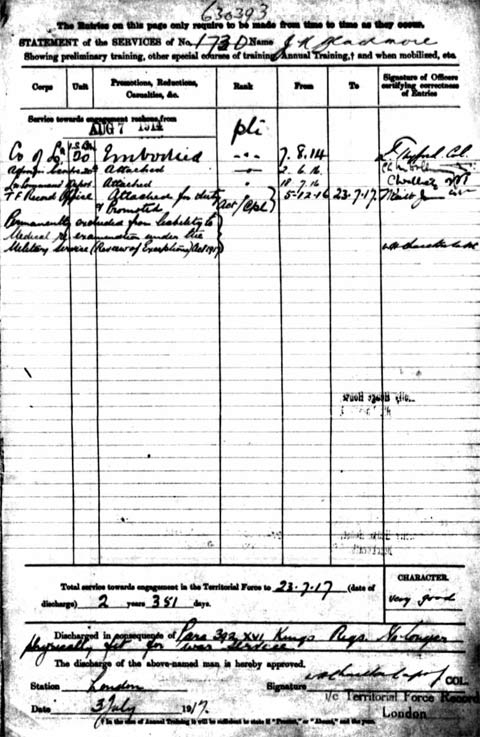 630393
The Entries on this page only require to be made from time to time as they occur.
STATEMENT of the SERVICES of No. 1730 Name J R
Showing preliminary training, other special courses of training, Annual Training,† and when mobilised, etc.
Corps Unit Promotions, Reductions, Casualties, &c. Rank From To Signature of Officers certifying correctness of Entries
Service towards engagement reckons from
AUG 7 1914
Pte
Co of Ln 20 Embodied 7.8.14 Col.
Attached 2.6.16
Command Depot. Attached 18.7.16
T F Record Office Attached for duty 5-12-16 23-7-17
& Promoted Act/Cpl
Permanently excluded from liability to
Medical re examination under the
Military Service (Review of Exceptions) Act 1917
Total service towards engagement in the Territorial Force to 23-7-17 (date of
discharge) 2 years 351 days.
CHARACTER.
Very good
Discharged in consequence of Para 392 XVI Kings Regs. No longer
physically fit for war service
The discharge of the above-named man is hereby approved.
Station London Signature COL.
i/c Territorial Force Record
London
Date 3 July 1917.
† In the case of Annual Training it will be sufficient to state if "Present," or "Absent," and the year.